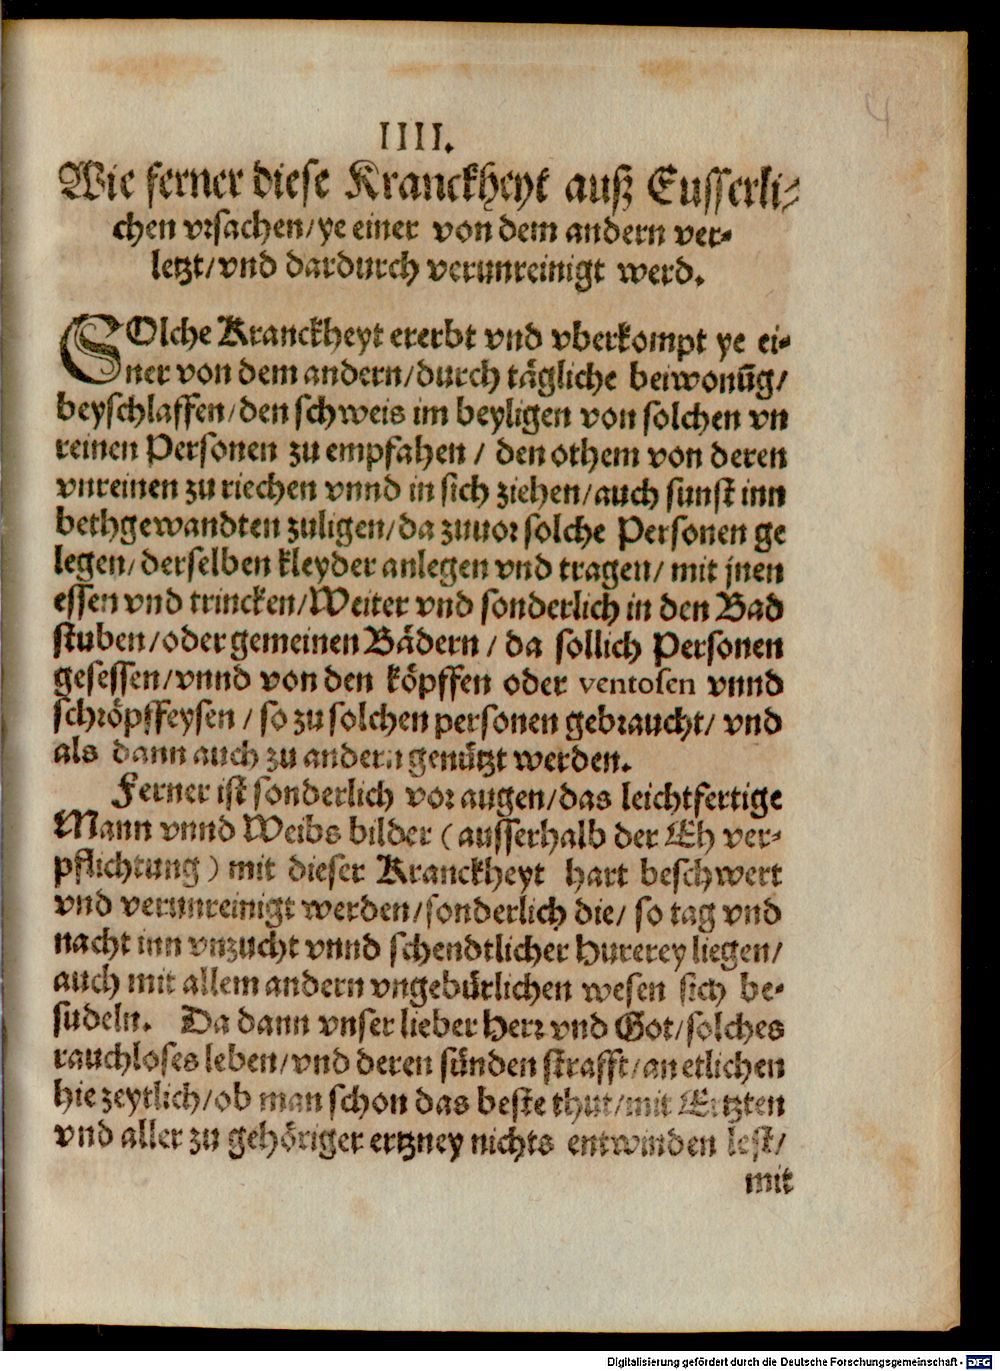 4
IIII.
Wie ferner diese Kranckheyt auß Eusserli-
chen vrsachen/ye einer von dem andern ver-
letzt/vnd dardurch verunreinigt werd.
SOlche Kranckheyt ererbt vnd vberkompt ye ei-
ner von dem andern/durch tägliche beiwonũg/
beyschlaffen/den schweis im beyligen von solchen vn
reinen Personen zu empfahen / den othem von deren
vnreinen zu riechen vnnd in sich ziehen/auch sunst inn
bethgewandten zuligen/da zuuor solche Personen ge
legen/derselben kleyder anlegen vnd tragen/ mit jnen
essen vnd trincken/Weiter vnd sonderlich in den Bad
stuben/oder gemeinen Bädern / da sollich Personen
gesessen/vnnd von den köpffen oder ventosen vnnd
schröpffeysen / so zu solchen personen gebraucht/ vnd
als dann auch zu andern genützt werden.
Ferner ist sonderlich vor augen/das leichtfertige
Mann vnnd Weibs bilder (ausserhalb der Eh ver-
pflichtung) mit dieser Kranckheyt hart beschwert
vnd verunreinigt werden/sonderlich die/ so tag vnd
nacht inn vnzucht vnnd schendtlicher Hurerey liegen/
auch mit allem andern vngebürlichen wesen sich be-
sudeln. Da dann vnser lieber Herr vnd Got/solches
rauchloses leben/vnd deren sünden strafft/an etlichen
hie zeytlich/ob man schon das beste thut/mit Ertzten
vnd aller zu gehöriger ertzney nichts entwinden lest/
mit
Digitalisierung gefördert durch die Deutsche Forschungsgemeinschaft - DFG